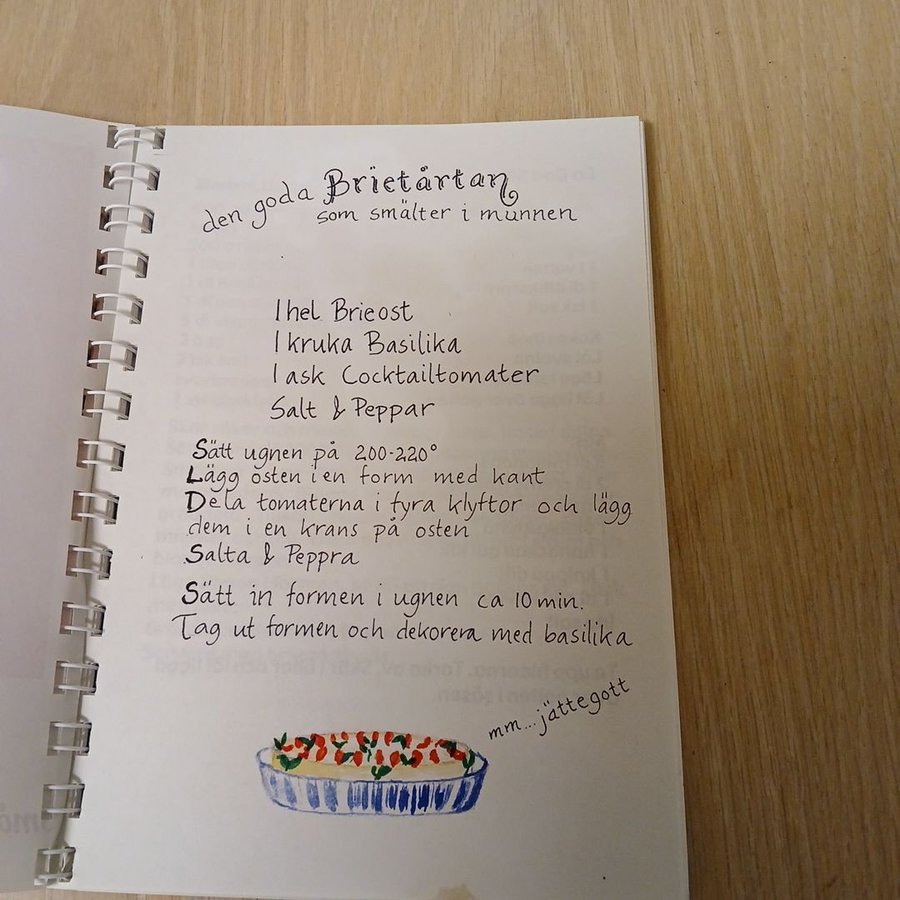 den goda Brietårtan
som smälter i munnen
1 hel Brieost
1 kruka Basilika
1 ask Cocktailtomater
Salt & Peppar
Sätt ugnen på 200-220°
Lägg osten i en form med kant
Dela tomaterna i fyra klyftor och lägg
dem i en krans på osten
Salta & Peppra
Sätt in formen i ugnen ca 10 min.
Tag ut formen och dekorera med basilika
mm...jättegott